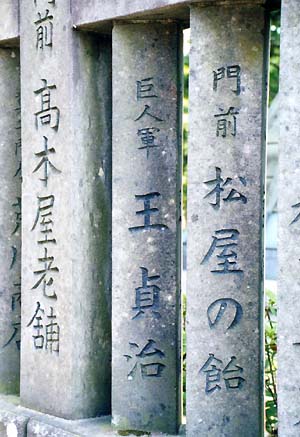 門前 松屋の飴
巨人軍 王貞治
門前 高木屋老舗